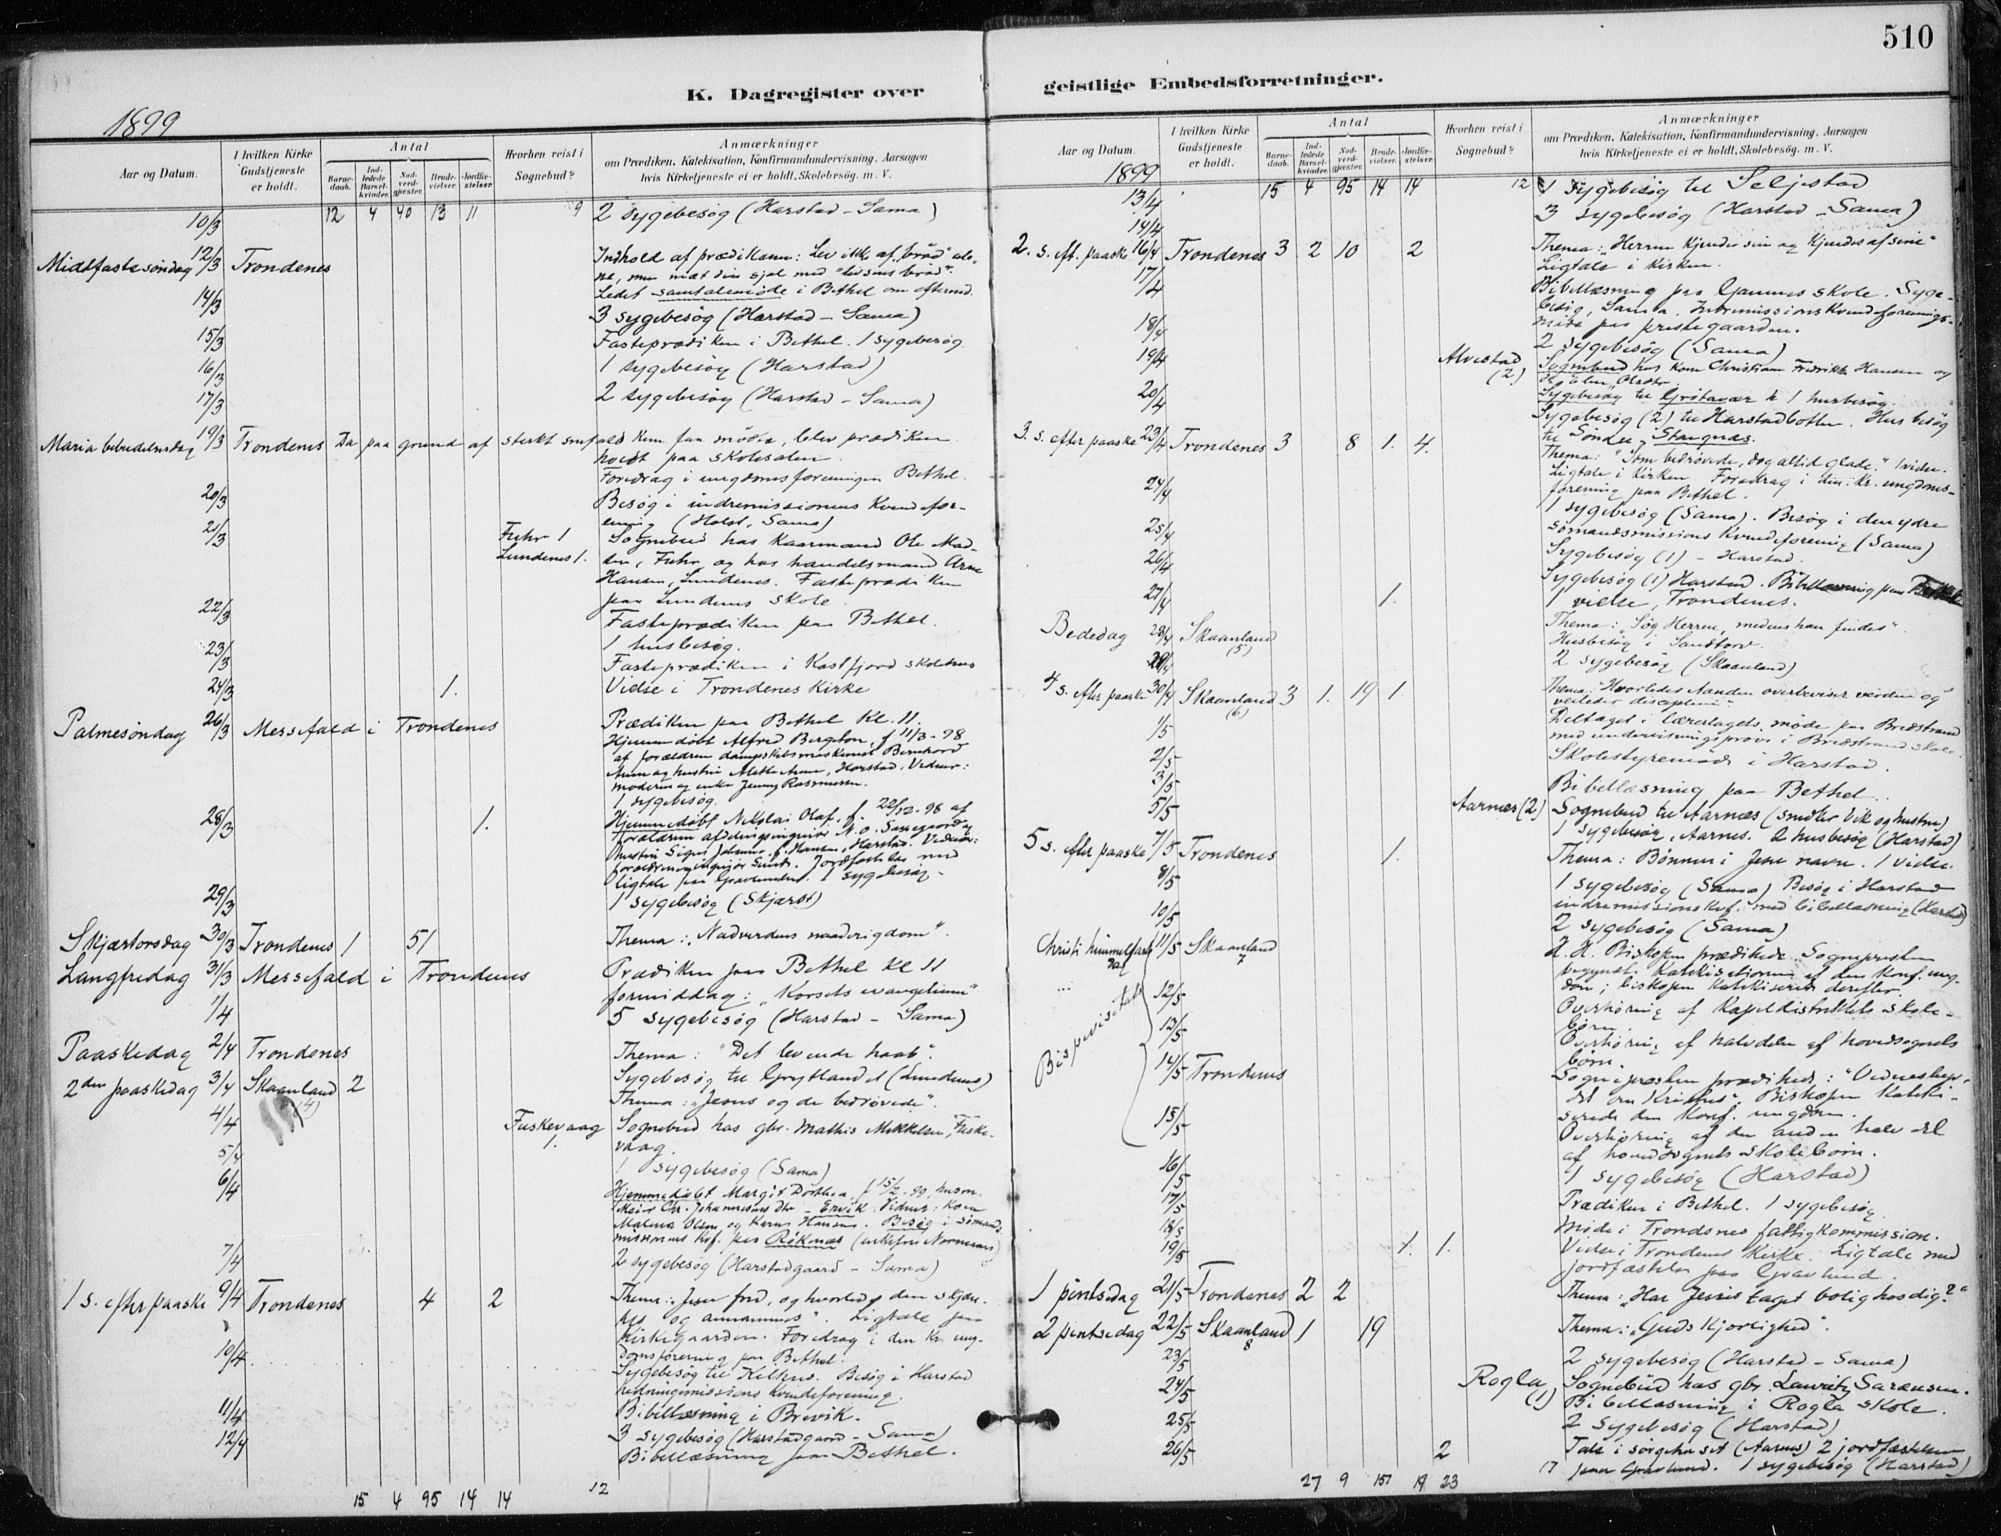 510
K. Dagregister over
geistlige Embedsforretninger.
1899
Aar og Datum.
I hvilken Kirke Gudstjeneste er holdt.
Antal
Barnedaab.
Indledede Barselkvinder.
Nadverdgjester.
Brudevielser.
Jordfæstelser.
Hvorhen reist i Sognebud?
Anmærkninger
om Prædiken, Katekisation, Konfirmandundervisning, Aarsagen
hvis Kirketjeneste ei er holdt, Skolebesøg, m. V.
10/3 12 4 40 13 11 9 2 sygebesøg (Harstad - Sama)
Midtfastesøndag 12/3 Trondenes Indhold af prædikenen: Lev ikke af "brød" ale-
ne, men mæt din sjæl med "livsens brød".
Ledet samtalemøde i Bethel om efterm.
14/3 3 sygebesøg (Harstad - Sama)
15/3 Fasteprædiken i Bethel. 1 sygebesøg
16/3 1 sygebesøg (Harstad)
17/3 2 sygebesøg (Harstad - Sama)
Maria bebudelsesdag 19/3 Trondenes Da paa grund af sterkt snefald kun faa mødte, blev prædiken
holdt paa skolesalen.
Foredrag i ungdomsforeningen Bethel.
20/3 Besøg i indremissionens Kvindefor-
ening (Holst, Sama)
21/3 Fuhr 1 Sognebud hos kaarmand Ole Mad-
Lundenes 1. sen, Fuhr og hos handelsmand Arne
Hansen, Lundenes. Fasteprædiken
paa Lundenes skole.
22/3 Fasteprædiken paa Bethel.
1 husbesøg.
23/3 Fasteprædiken i Kasfjord skolehus
24/3 1. Vielse i Trondenes Kirke
Palmesøndag 26/3 Messefald i Trondenes Prædiken paa Bethel Kl. 11.
Hjemmedøbt Alfred Bergeton, f 11/3-98
1 sygebesøg.
28/3 1. Hjemmedøbt Nikolai Olaf, f. 22/12-98 af
29/3 1 sygebesøg (Skjærst)
Skjærtorsdag 30/3 Trondenes 1 51 Thema: "Nadverdens naaderigdom"
Langfredag 31/3 Messefald i Trondenes Prædiken paa Bethel Kl 11
formiddag: "Korsets evangelium"
1/4 5 sygebesøg (Harstad - Sama)
Paaskedag 2/4 Trondenes Thema: "Det levende haab".
Sygebesøg til Grytlandet (Lundenes)
2den paaskedag 3/4 Skaanland (4) 2 Thema: "Jesus og de bedrøvede".
4/4 Fuskevaag 1. Sognebud hos gbr. Mathis Mikkelsen, Fuske-
vaag.
5/4 1 sygebesøg (Sama)
6/4 Hjemmedøbt Margit Dorthea, f 15/2-99, husm.
7/4 2 sygebesøg (Harstadgaard - Sama)
1 s. efter paaske 9/4 Trondenes 4 2 Thema: Jesu fred, og hvorledes den skjæn-
kes og annammes". Ligtale paa
Kirkegaarden. Foredrag i den kr. ung-
domsforening paa Bethel.
10/4 Sygebesøg til Kilhus. Besøg i Harstad
hedningemissions kvindeforening.
11/4 Bibellæsning i Brevik.
12/4 3 sygebesøg (Harstadgaard - Sama)
Bibellæsning paa Bethel.
15 4 95 14 14 12
Aar og Datum.
I hvilken Kirke Gudstjeneste er holdt.
Antal
Barnedaab.
Indledede Barselkvinder.
Nadverdgjester.
Brudevielser.
Jordfæstelser.
Hvorhen reist i Sognebud?
Anmærkninger
om Prædiken, Katekisation, Konfirmandundervisning, Aarsagen
hvis Kirketjeneste ei er holdt, Skolebesøg, m. V.
1899
13/4 15 4 95 14 14 12 1 sygebesøg til Seljestad
14/4 3 sygebesøg (Harstad - Sama)
2. s. eft. paaske 16/4 Trondenes 3 2 10 2 Thema: "Herren kjender sine og kjendes af sine"
Ligtale i kirken.
17/4 Bibellæsning paa Gannes skole. Syge-
besøg, Sama. Indremissionskvindeforenings-
møde paa prestegaarden.
18/4 2 sygebesøg (Sama)
19/4 Alvestad (2) Sognebud hos Kone Christiane Fredrikke Hansen og
20/4 Sygebesøg til Grøtavær & 1 husbesøg.
Sygebesøg (2) til Harstadbotten. Husbesøg
til Søndre Stangnæs.
3. s. efter paaske 23/4 Trondenes 3 8 1. 4. Thema: "Som bedrøvede, dog altid glade." 1 vielse.
Ligtale i Kirken. Foredrag i den kr. ungdoms-
forening paa Bethel.
24/4 1 sygebesøg (Sama). Besøg i den ydre
25/4 sømandsmissions Kvindeforening (Sama)
26/4 Sygebesøg (1) - Harstad.
27/4 1. Sygebesøg (1) Harstad. Bibellæsning paa Bethel
1 vielse, Trondenes.
Bededag 28/4 Skaanland (5) Thema: Søg Herren, medens han findes"
Husbesøg i Sandtorv.
29/4 2 sygebesøg (Skaanland)
4 s. efter paaske 30/4 Skaanland (6) 3 1. 19 1. Thema: "Hvorledes Aanden overbeviser verden og
veileder disciplene"
1/5 Deltaget i lærerlagets møde paa Bredstrand
med undervisningsprøve i Bredstrand skole.
2/5 Skolestyremøde i Harstad.
3/5 Bibellæsning paa Bethel.
5/5 Aarnæs (2) Sognebud til Aarnæs (smeler Vik og hustru)
1 sygebesøg, Aarnes. 2 husbesøg (Harstad)
5 s. efter paaske 7/5 Trondenes 1. Thema: Bønnen i Jesu navn. 1 vielse.
8/5 1 sygebesøg (Sama) Besøg i Harstad
indremissionskvf. med bibellæsning (Harstad)
10/5 2 sygebesøg (Sama)
Christi himmelfarts dag 11/5 Skaanland 7 H. H. Biskopen prædikede. Sognepresten
begyndte Katekisationen af den konf. ung-
dom; biskopen katekiserede derefter.
Bispevisitats
12/5 Overhøring af Kapeldistriktets skole-
børn.
13/5 Overhøring af halvdelen af hovedsognets
børn.
14/5 Trondenes Sognepresten prædikede: "Vidnesbyr-
det om Kristus". Biskopen kateki-
serede den konf. ungdom.
15/5 Overhøring af den anden halvdel
af hovedsognets skolebørn.
16/5 1 sygebesøg (Harstad)
17/5 Prædiken i Bethel. 1 sygebesøg
18/5 Møde i Trondenes fattigkommission.
19/5 1. 1. Vielse i Trondenes Kirke. Ligtale med
jordfæstelse paa Gravlund.
1 pintsedag 21/5 Trondenes 2 2 Thema: "Har Jesus taget bolig hos dig?"
2 pintsedag 22/5 Skaanland 8 1 19 Thema: "Guds Kjærlighed".
23/5 2 sygebesøg (Harstad - Sama)
24/5 Rogla (1) Sognebud hos gbr. Lauritz Sørensen.
Bibellæsning i Rogla skole.
25/5 2 sygebesøg (Harstad)
26/5 2 Tale i sørgehuset (Aarnes) 2 jordfæstelser
paa Gravlund. 1 sygebesøg (Harstad)
27 9 151 19 23 17